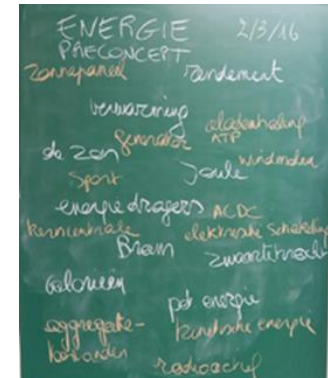 ENERGIE 2/3/16
PRECONCEPT
Zonnepaneel rendement
verwarming
generator ademhaling
ATP
de zon windmolen
Sport Joule
energie dragers ACDC
kerncentrale elektrische schakeling
Brein zwaartekracht
Calorieën
pot energie
aggregatie- kinetische energie
toestanden
radioactief